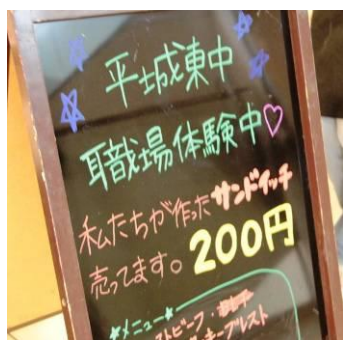 平城東中
職場体験中♡
私たちが作ったサンドイッチ
売ってます。200円
★メニュー★
ストビーフ・